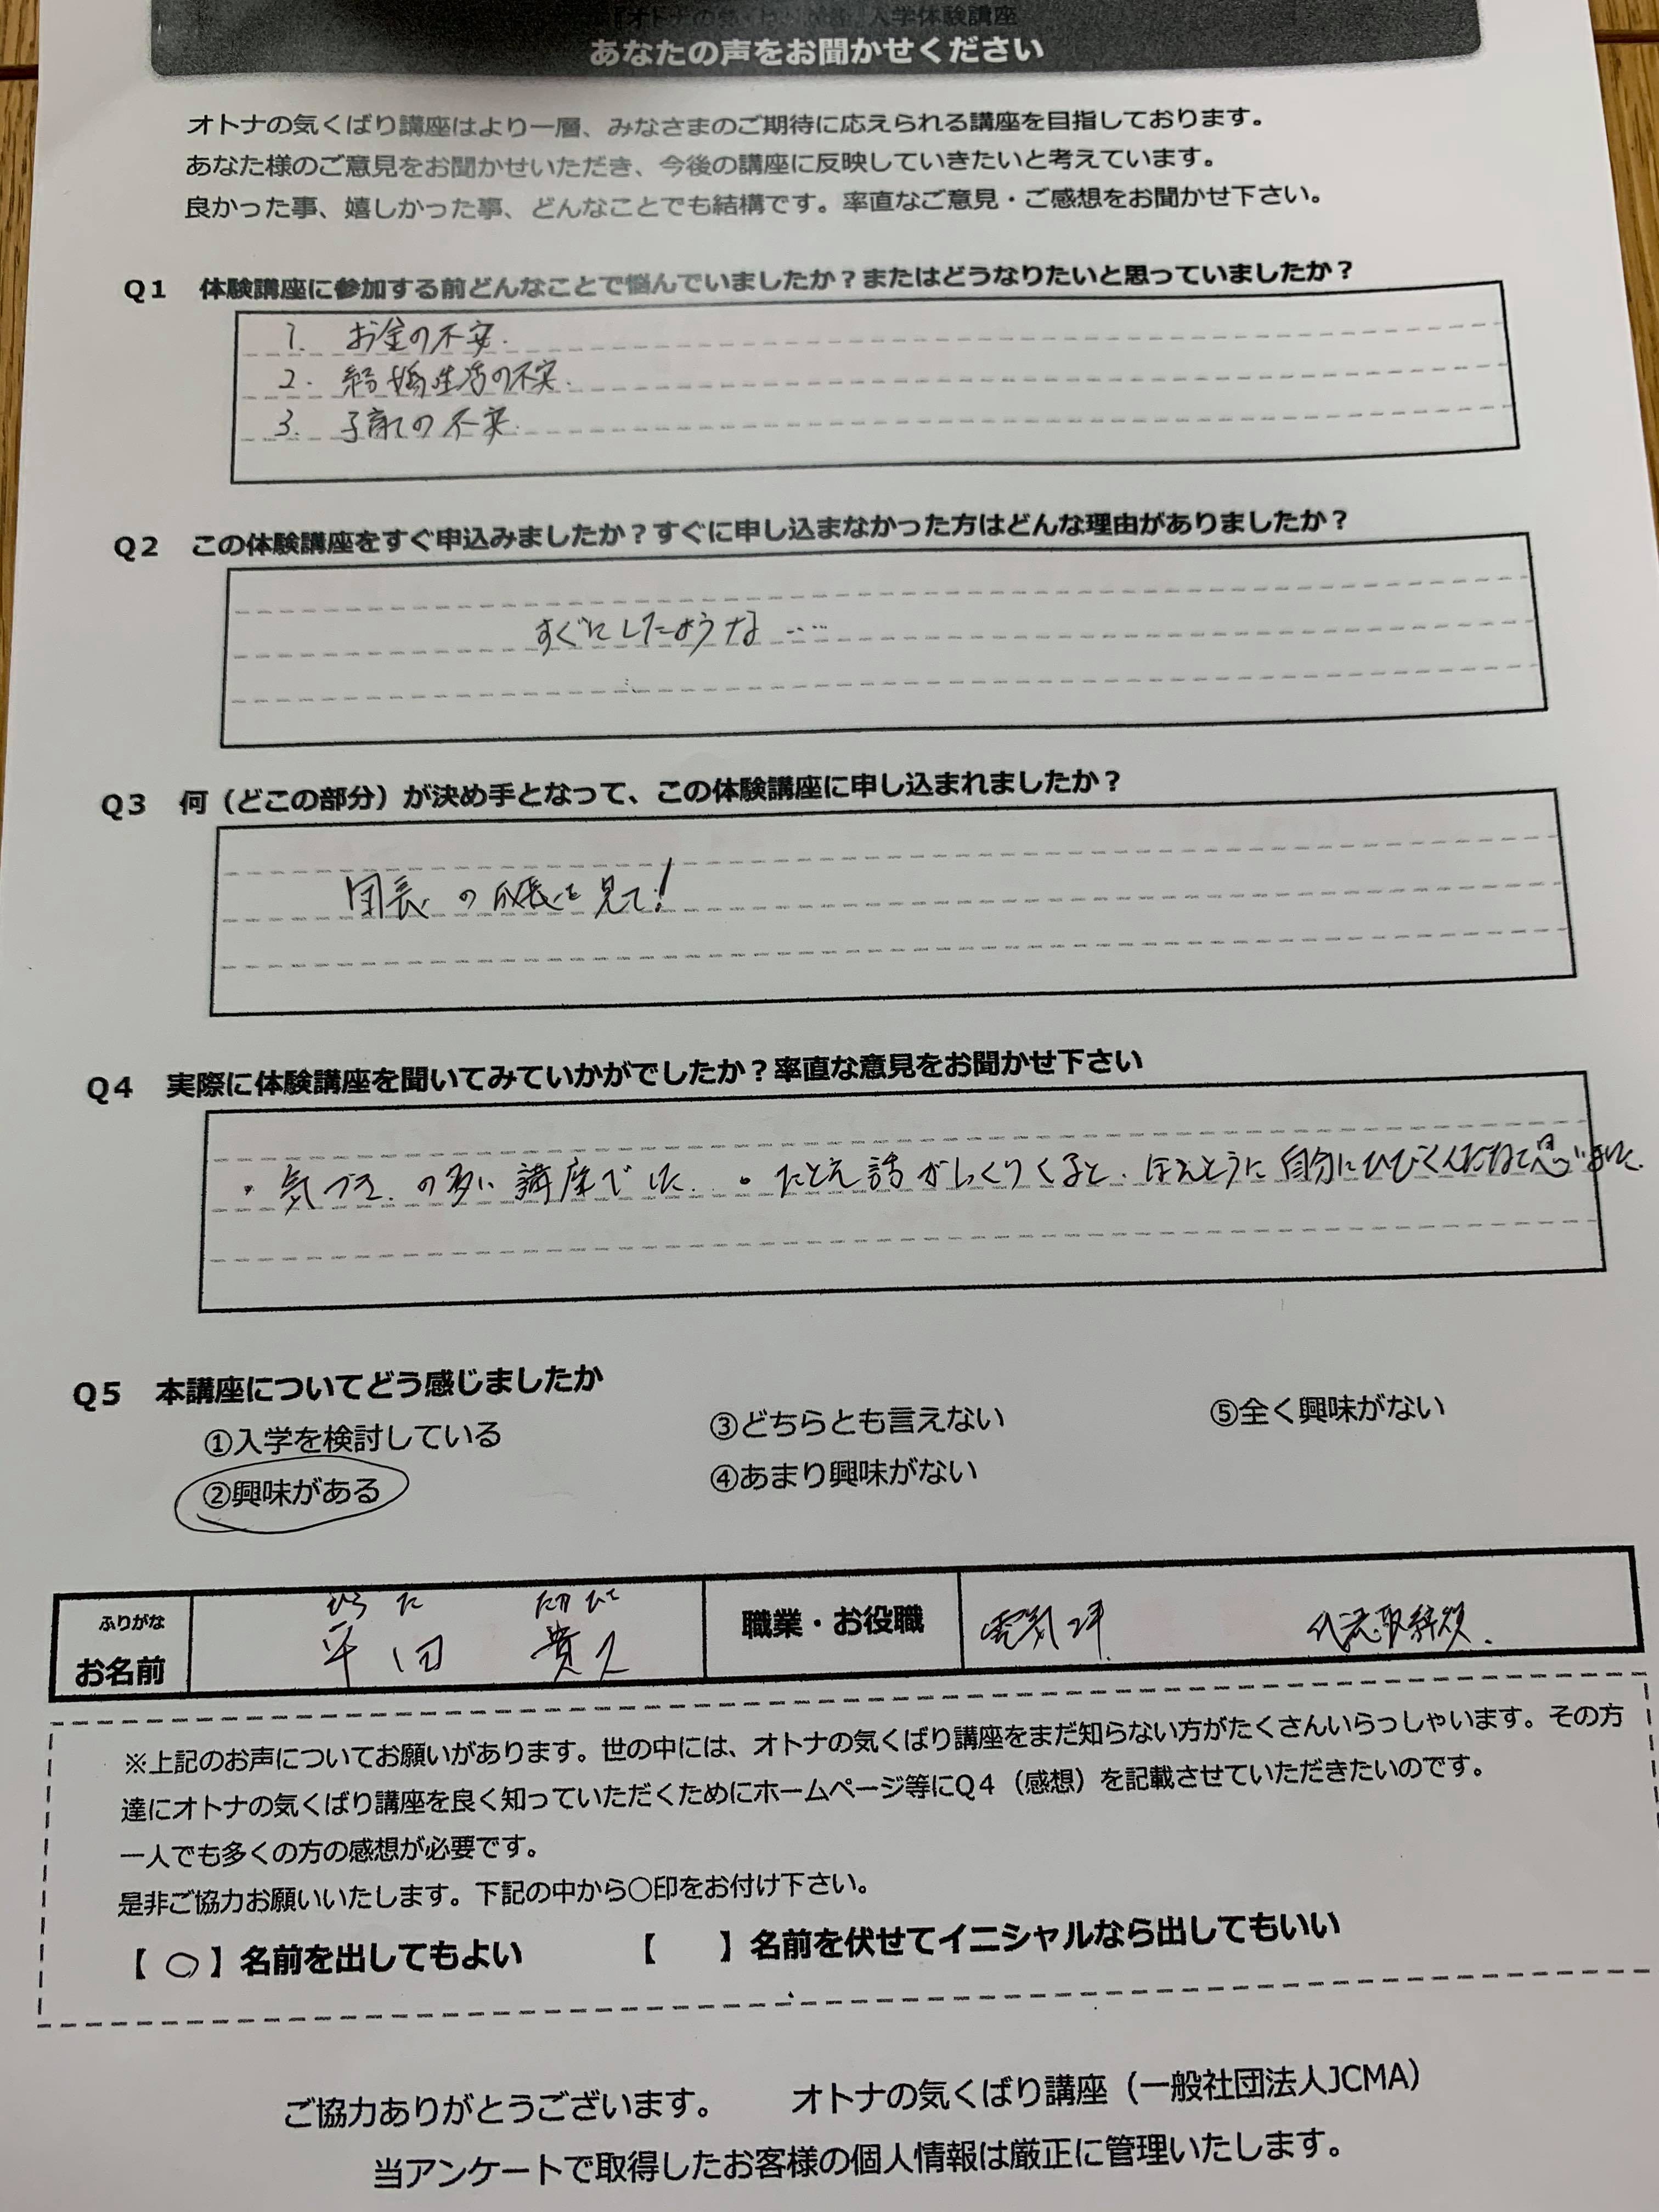 入学体験講座
あなたの声をお聞かせください
オトナの気くばり講座はより一層、みなさまのご期待に応えられる講座を目指しております。
あなた様のご意見をお聞かせいただき、今後の講座に反映していきたいと考えています。
良かった事、嬉しかった事、どんなことでも結構です。率直なご意見・ご感想をお聞かせ下さい。
Q1 体験講座に参加する前どんなことで悩んでいましたか？またはどうなりたいと思っていましたか？
1. お金の不安.
2. 結婚生活の不安.
3. 子育ての不安.
Q2 この体験講座をすぐ申込みましたか？すぐに申し込まなかった方はどんな理由がありましたか？
すぐにしたような……
Q3 何（どこの部分）が決め手となって、この体験講座に申し込まれましたか？
団長の成長を見て！
Q4 実際に体験講座を聞いてみていかがでしたか？率直な意見をお聞かせ下さい
・気づきの多い講座でした. ・たとえ話がしっくりくると、ほんとうに自分にひびくんだなと思いました.
Q5 本講座についてどう感じましたか
①入学を検討している ③どちらとも言えない ⑤全く興味がない
②興味がある ④あまり興味がない
ふりがな ひらた たかひさ
お名前 平田 貴久 職業・お役職 電気工事 代表取締役.
※上記のお声についてお願いがあります。世の中には、オトナの気くばり講座をまだ知らない方がたくさんいらっしゃいます。その方
達にオトナの気くばり講座を良く知っていただくためにホームページ等にQ4（感想）を記載させていただきたいのです。
一人でも多くの方の感想が必要です。
是非ご協力お願いいたします。下記の中から○印をお付け下さい。
【 ○ 】名前を出してもよい 【 】名前を伏せてイニシャルなら出してもいい
ご協力ありがとうございます。 オトナの気くばり講座（一般社団法人JCMA）
当アンケートで取得したお客様の個人情報は厳正に管理いたします。